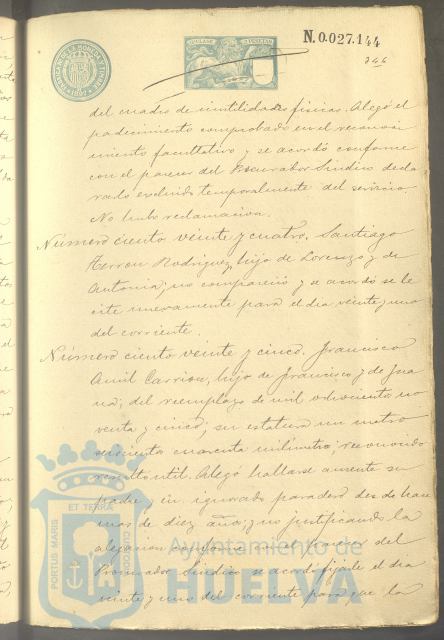 N.0.027.144
346
del cuadro de inutilidades físicas. Alegó el
padecimiento comprobado en el reconoci
miento facultativo y se acordó conforme
con el parecer del Procurador Síndico decla
rarlo excluido temporalmente del servicio
No hubo reclamacion.
Número ciento veinte y cuatro, Santiago
Terron Rodriguez, hijo de Lorenzo y de
Antonia; no compareció y se acordó se le
cite nuevamente para el dia veinte y uno
del corriente.
Número ciento veinte y cinco. Francisco
Amil Carrion, hijo de Francisco y de Jua
na; del reemplazo de mil ochocientos no
venta y cinco; su estatura un metro
seiscientos cuarenta milímetros; reconocido
resultó util. Alegó hallarse ausente su
padre, en ignorado paradero desde hace
mas de diez años; y no justificando la
alegacion conforme con el parecer del
Procurador Síndico se acordó fijarle el dia
veinte y uno del corriente para que la
PORTUS MARIS ET TERRAE CUSTODIA
Ayuntamiento de
HUELVA